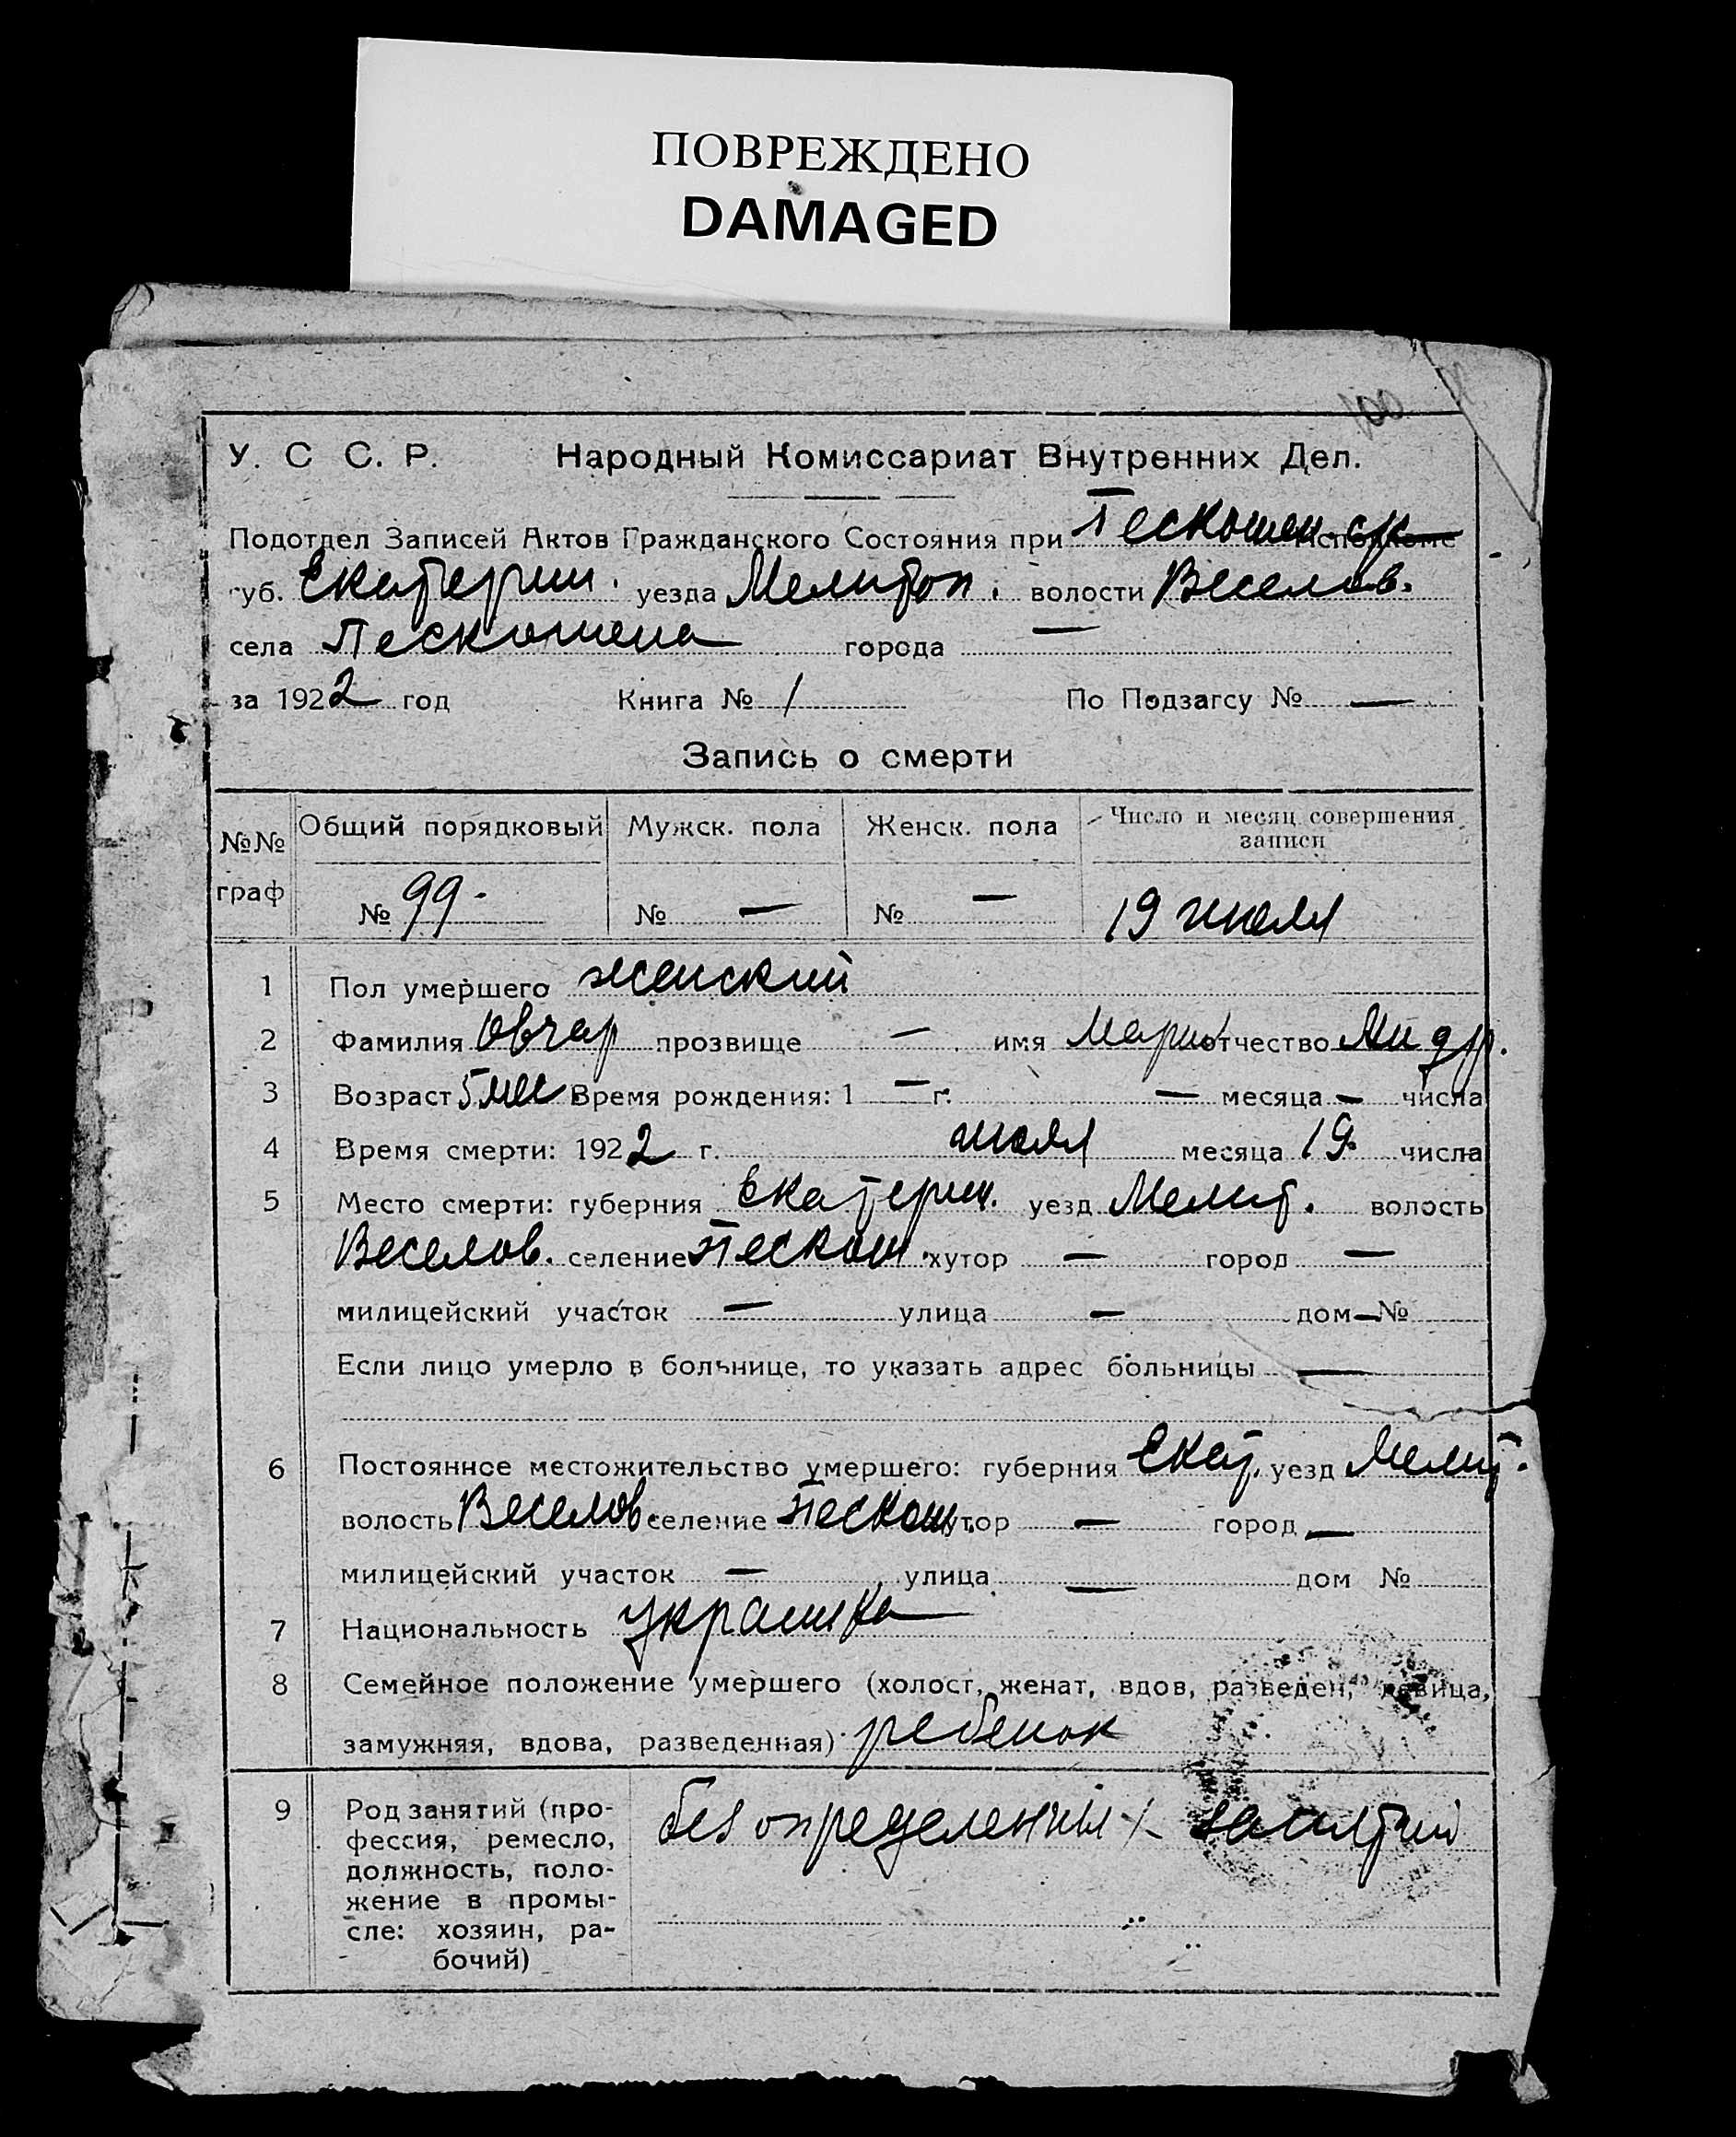 ПОВРЕЖДЕНО
DAMAGED
У. С С. Р. Народный Комиссариат Внутренних Дел.
Подотдел Записей Актов Гражданского Состояния при Пескошен. с/с
губ. Екатерин. уезда Мелитоп. волости Веселов.
села Пескошена города —
за 1922 год Книга № 1 По Подзагсу № —
Запись о смерти
№№ граф Общий порядковый Мужск. пола Женск. пола Число и месяц совершения записи
№ 99- № — № — 19 июля
1 Пол умершего женский
2 Фамилия Овчар прозвище — имя Мария отчество Андр.
3 Возраст 5 мес Время рождения: 1 — г. — месяца — числа
4 Время смерти: 1922 г. июля месяца 19 числа
5 Место смерти: губерния Екатерин. уезд Мелит. волость
Веселов. селение Пескош. хутор — город —
милицейский участок — улица — дом — №
Если лицо умерло в больнице, то указать адрес больницы —
6 Постоянное местожительство умершего: губерния Екат. уезд Мелит.
волость Веселов. селение Пескош. хутор — город —
милицейский участок — улица — дом №
7 Национальность украинка
8 Семейное положение умершего (холост, женат, вдов, разведен, девица,
замужняя, вдова, разведенная) ребенок
9 Род занятий (про-
фессия, ремесло,
должность, поло-
жение в промы-
сле: хозяин, ра-
бочий)
без определенных занятий